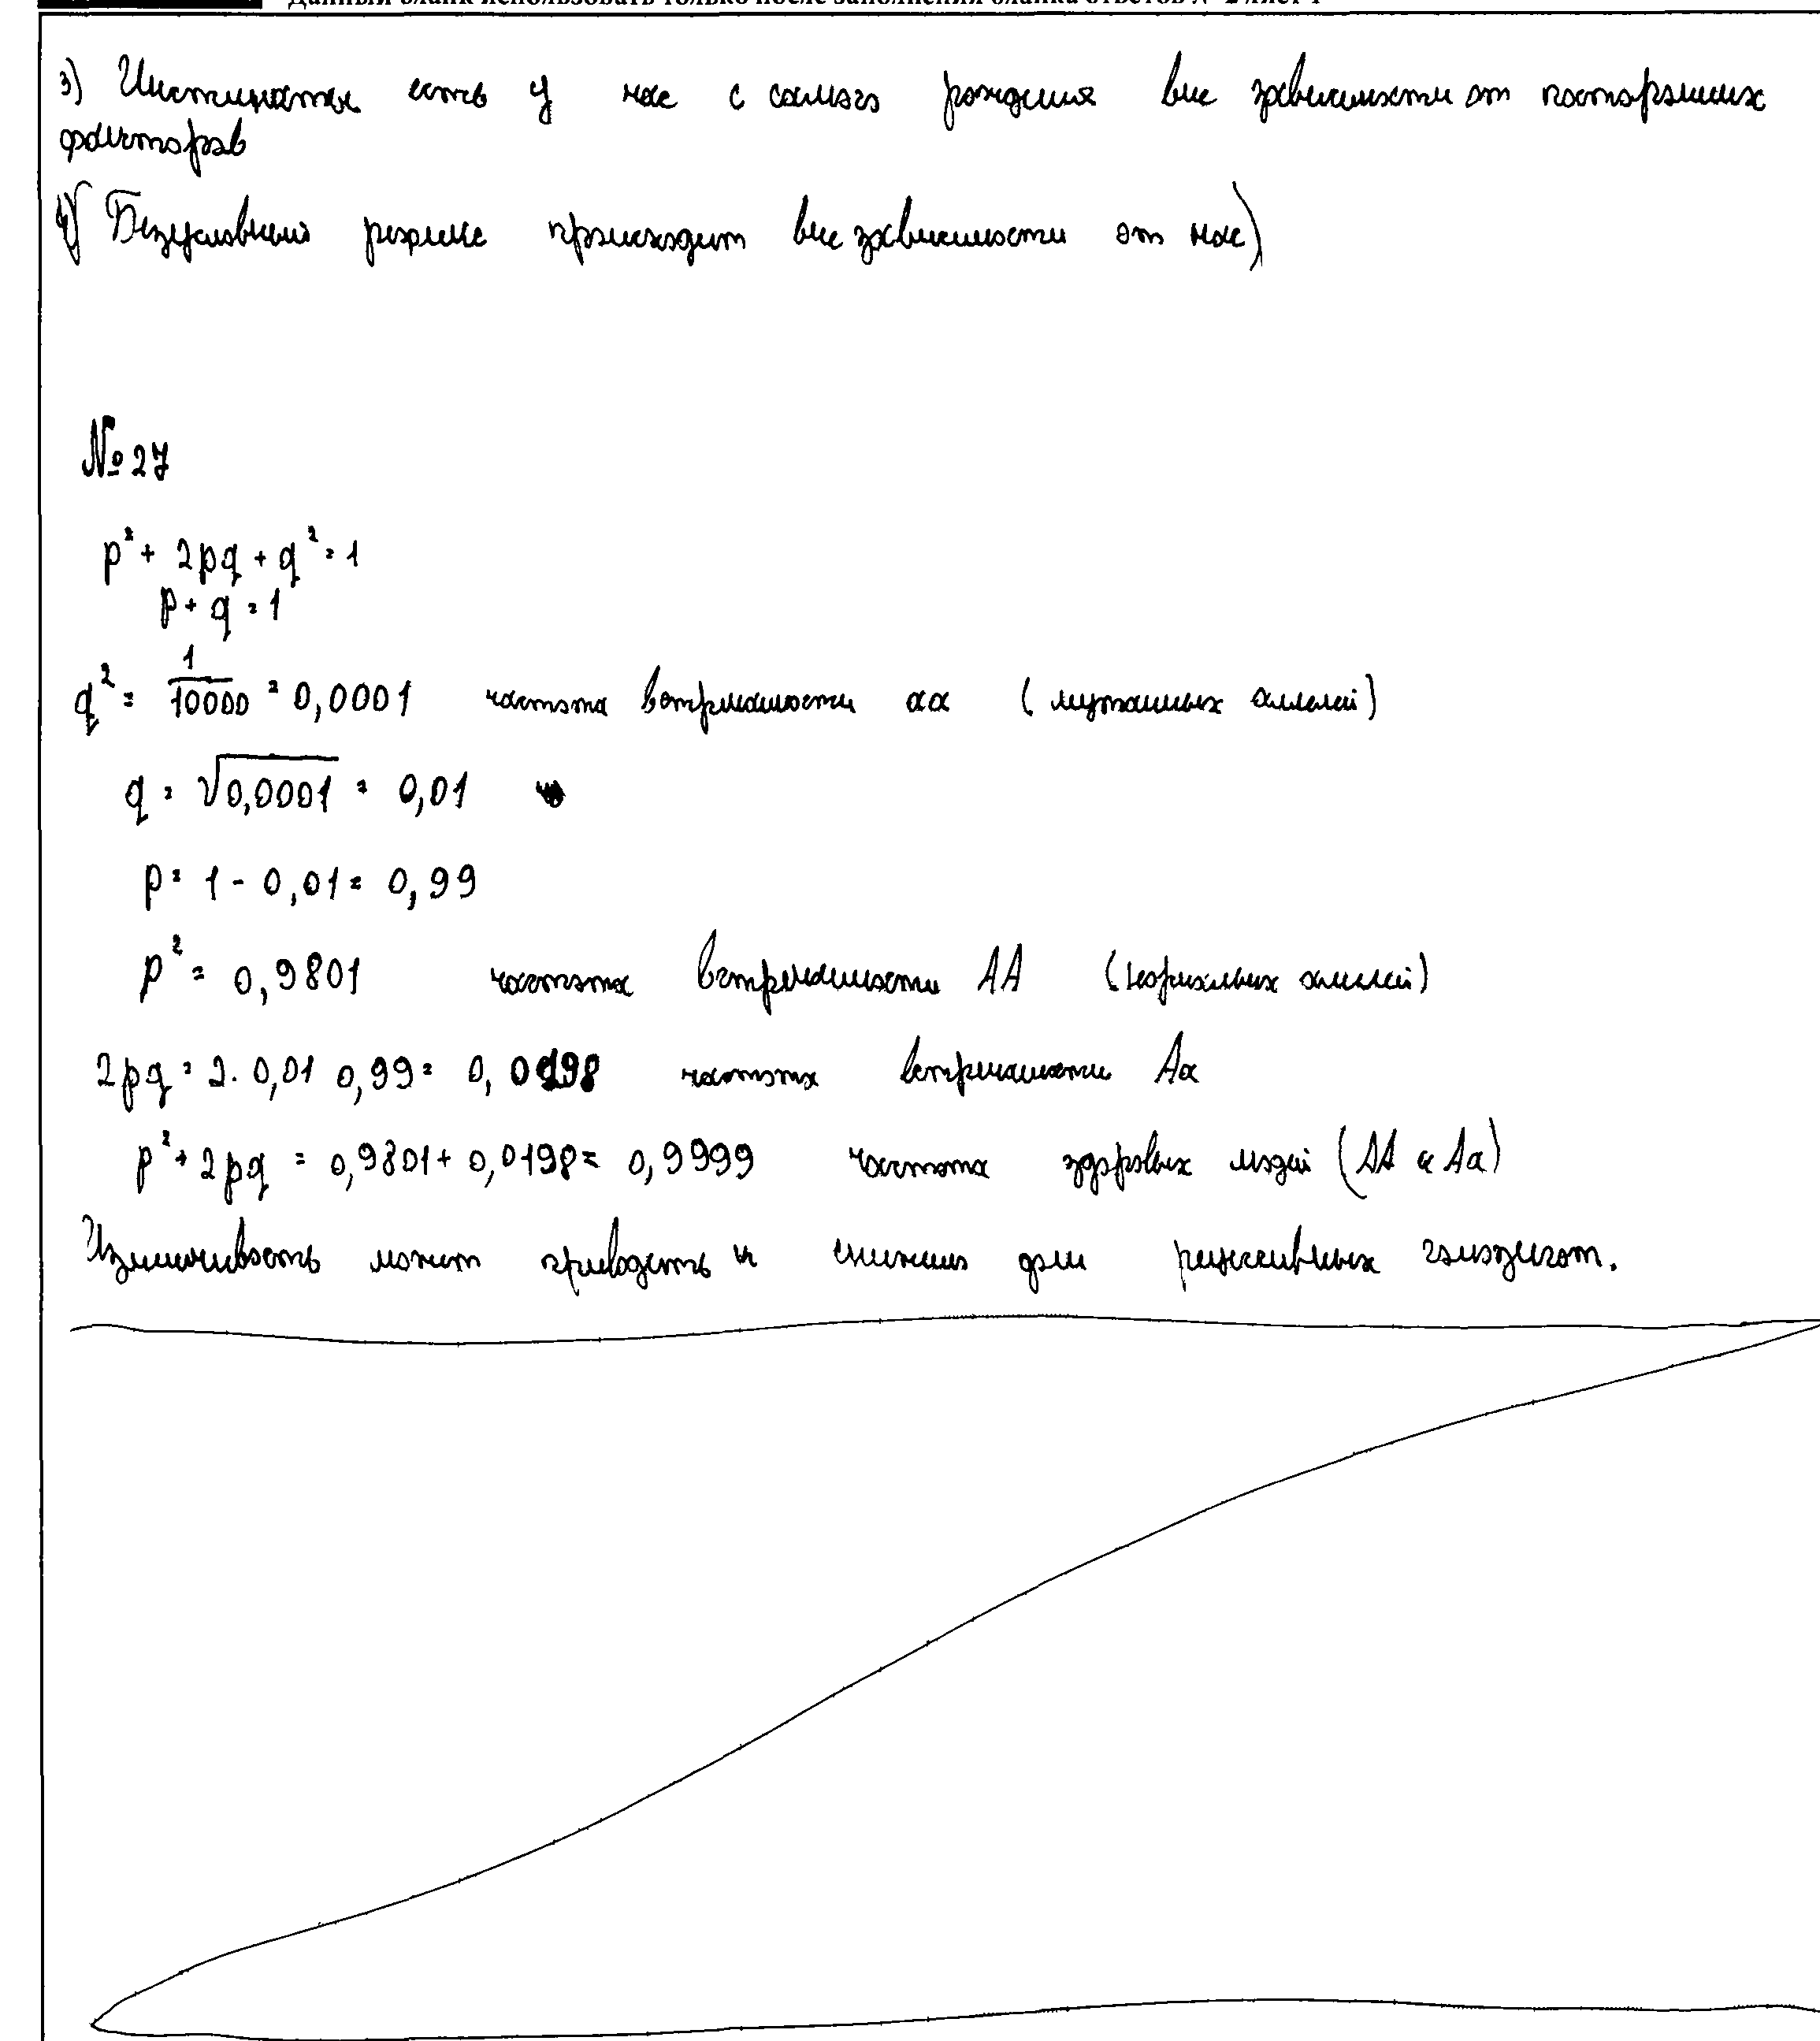 Данный бланк использовать только после заполнения бланка ответов № 2 лист 1
3) Инстинкты есть у нас с самого рождения вне зависимости от посторонних
факторов
4) Безусловный рефлекс происходит вне зависимости от нас)
№ 27
p² + 2pq + q² = 1
p + q = 1
q² = 1/10000 = 0,0001 частота встречаемости аа (мутантных аллелей)
q = √0,0001 = 0,01
p = 1 - 0,01 = 0,99
p² = 0,9801 частота встречаемости АА (нормальных аллелей)
2pq = 2 · 0,01 0,99 = 0,0198 частота встречаемости Аа
p² + 2pq = 0,9801 + 0,0198 = 0,9999 частота здоровых людей (АА и Аа)
Изменчивость может приводить к снижению доли рецессивных гомозигот.